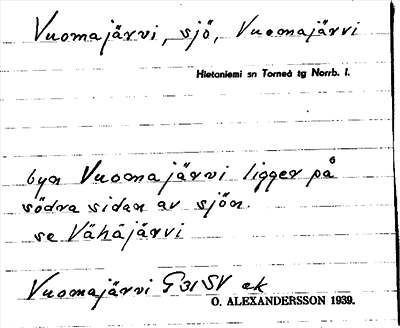 Vuomajärvi, sjö, Vuomajärvi
Hietaniemi sn Torneå tg Norrb. l.
byn Vuomajärvi ligger på
södra sidan av sjön.
se Vähäjärvi
Vuomajärvi G31SV ek
O. ALEXANDERSSON 1939.